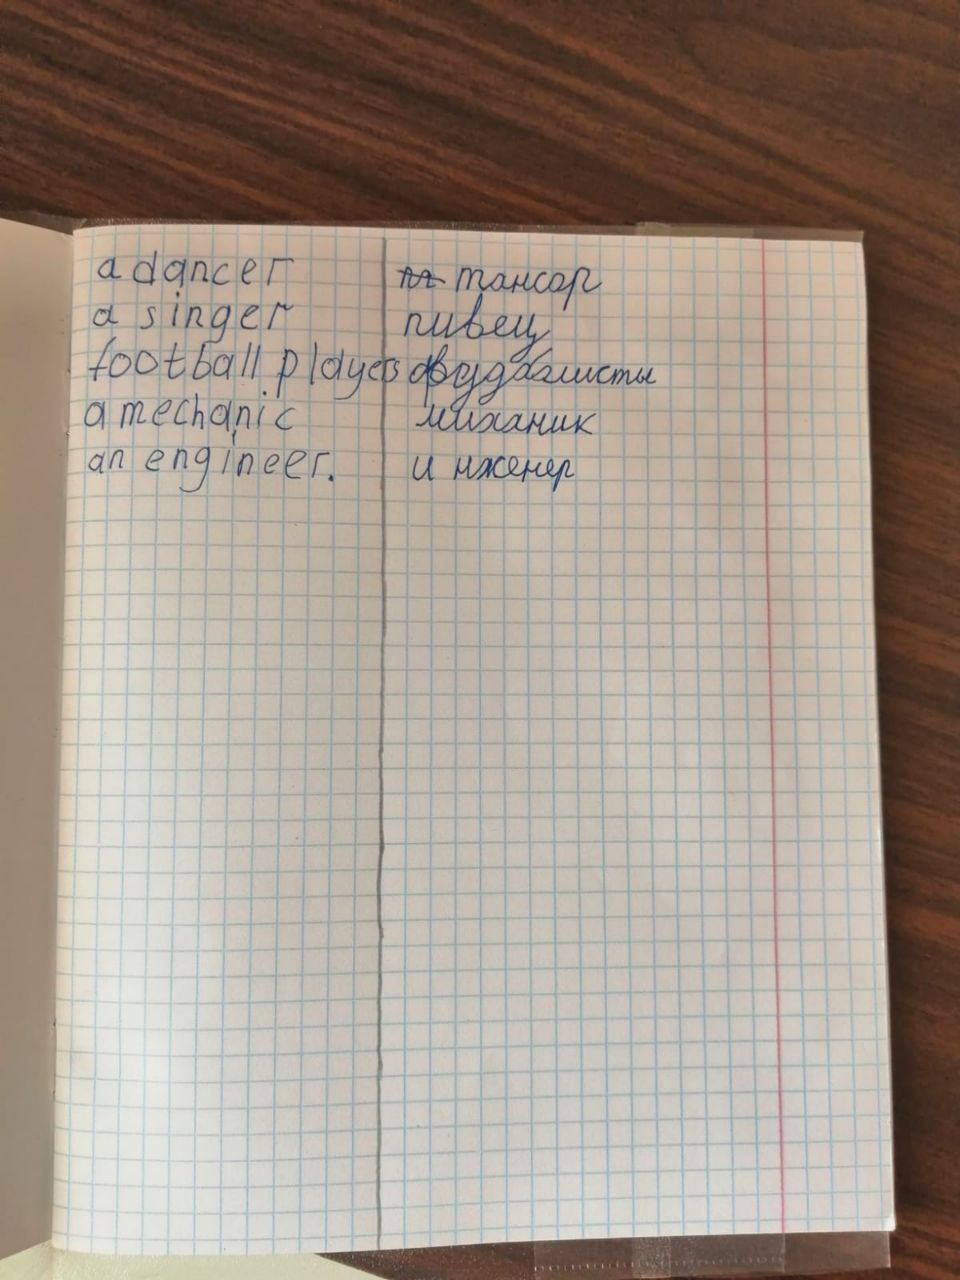 a dancer тансор
a singer пивец
football players фудбалисты
a mechanic миханик
an engineer. инженер